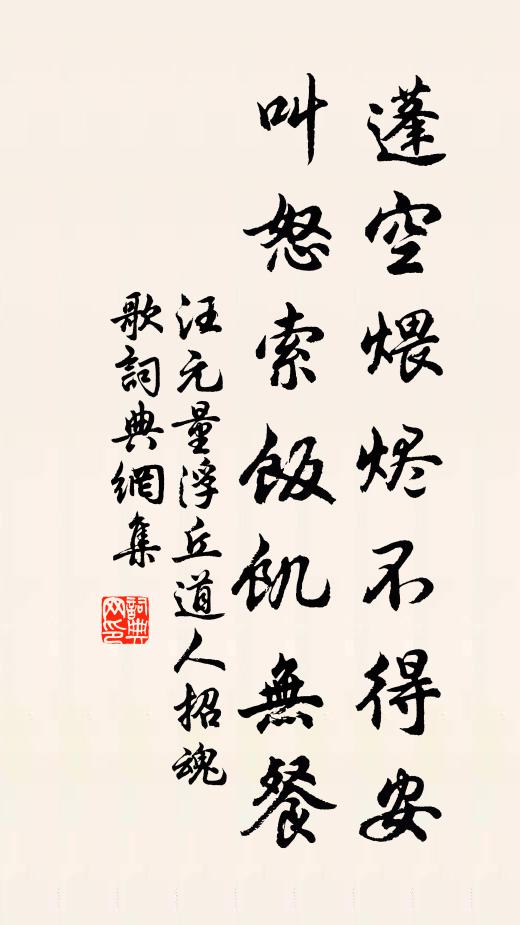 蓬空煨烬不得安
叫怒索飯飢無餐
汪元量浮丘道人招魂
歌詞典網集
詞典网印